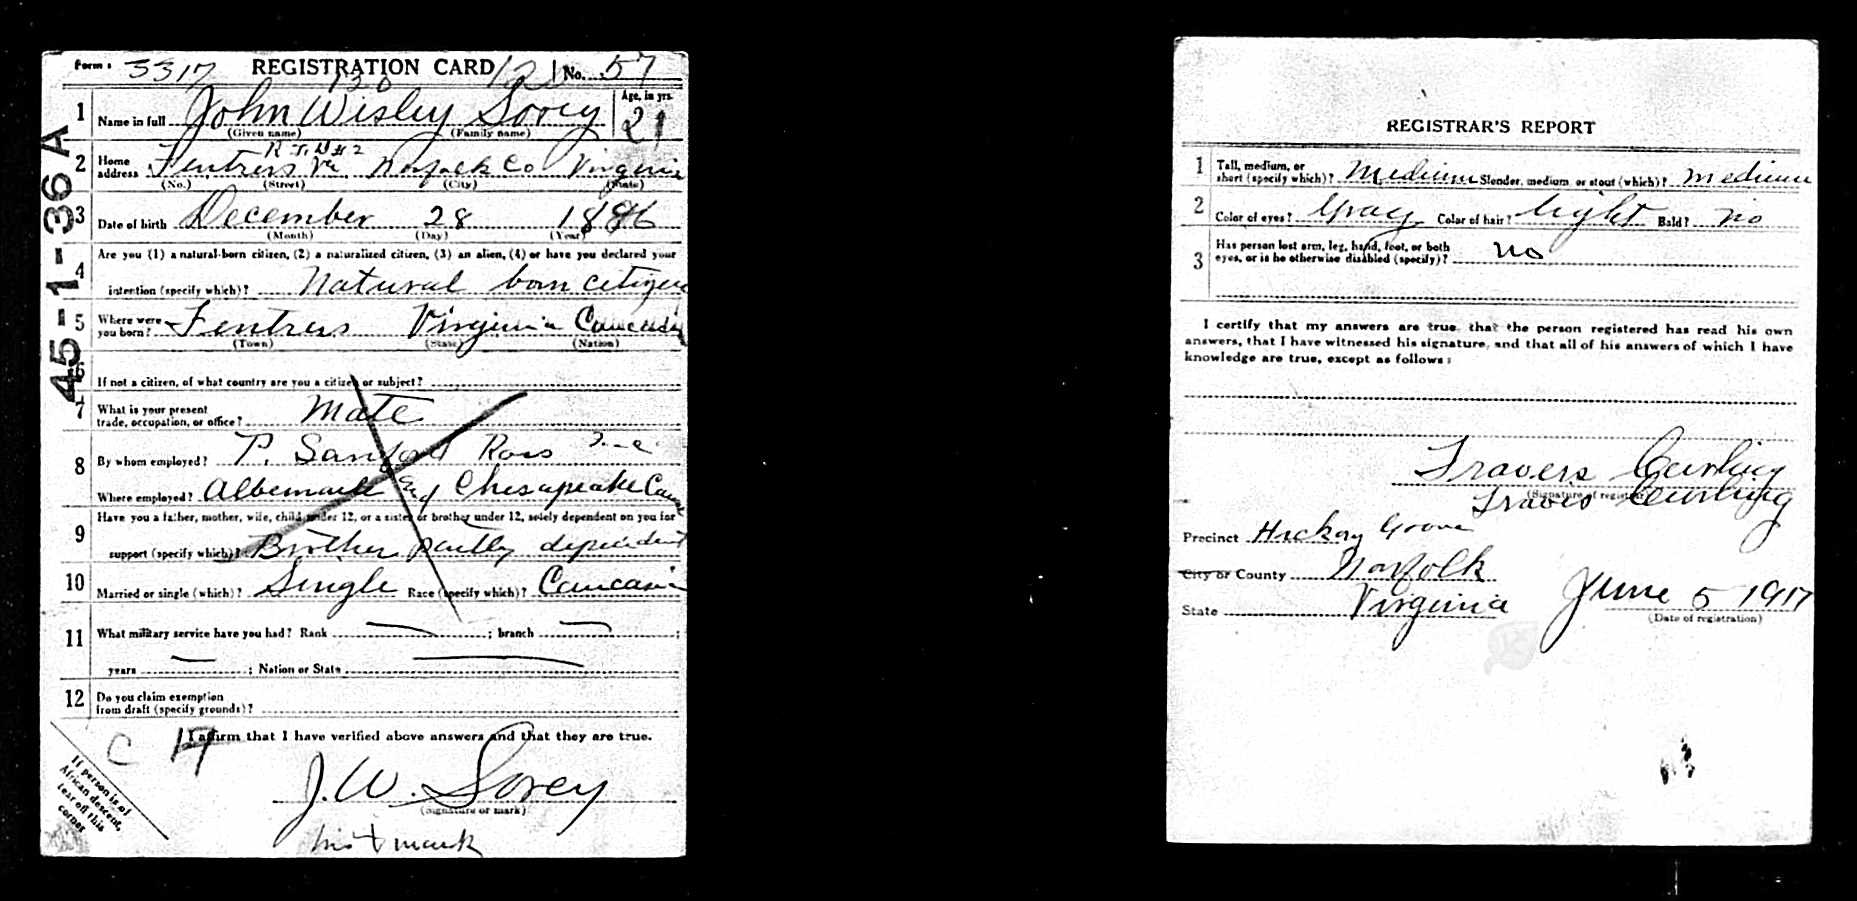 Form 1 3317 REGISTRATION CARD 12 No. 57
130
1 Name in full John Wisley Sorey Age, in yrs. 21
(Given name) (Family name)
R F D #2
2 Home address Fentress Va Norfolk Co Virginia
(No.) (Street) (City) (State)
3 Date of birth December 28 1896
(Month) (Day) (Year)
Are you (1) a natural-born citizen, (2) a naturalized citizen, (3) an alien, (4) or have you declared your
4 intention (specify which)? Natural born citizen
5 Where were you born? Fentress Virginia Caucasian
(Town) (State) (Nation)
6 If not a citizen, of what country are you a citizen or subject?
7 What is your present trade, occupation, or office? Mate
8 By whom employed? P. Sanford Ross Inc
Where employed? Albemarle and Chesapeake Canal
Have you a father, mother, wife, child under 12, or a sister or brother under 12, solely dependent on you for
9 support (specify which)? Brother partly dependent
10 Married or single (which)? Single Race (specify which)? Caucasian
11 What military service have you had? Rank ; branch ;
years ; Nation or State
12 Do you claim exemption
from draft (specify grounds)?
C 17
I affirm that I have verified above answers and that they are true.
J. W. Sorey
(Signature or mark)
his + mark
If person is of
African descent,
tear off this
corner
45-1-36 A
REGISTRAR'S REPORT
1 Tall, medium, or short (specify which)? Medium Slender, medium, or stout (which)? medium
2 Color of eyes? Gray Color of hair? Light Bald? no
3 Has person lost arm, leg, hand, foot, or both
eyes, or is he otherwise disabled (specify)? no
I certify that my answers are true, that the person registered has read his own
answers, that I have witnessed his signature, and that all of his answers of which I have
knowledge are true, except as follows:
Travers Curling
(Signature of registrar)
Travis Curling
Precinct Hickory Grove
City or County Norfolk
State Virginia June 5 1917
(Date of registration)